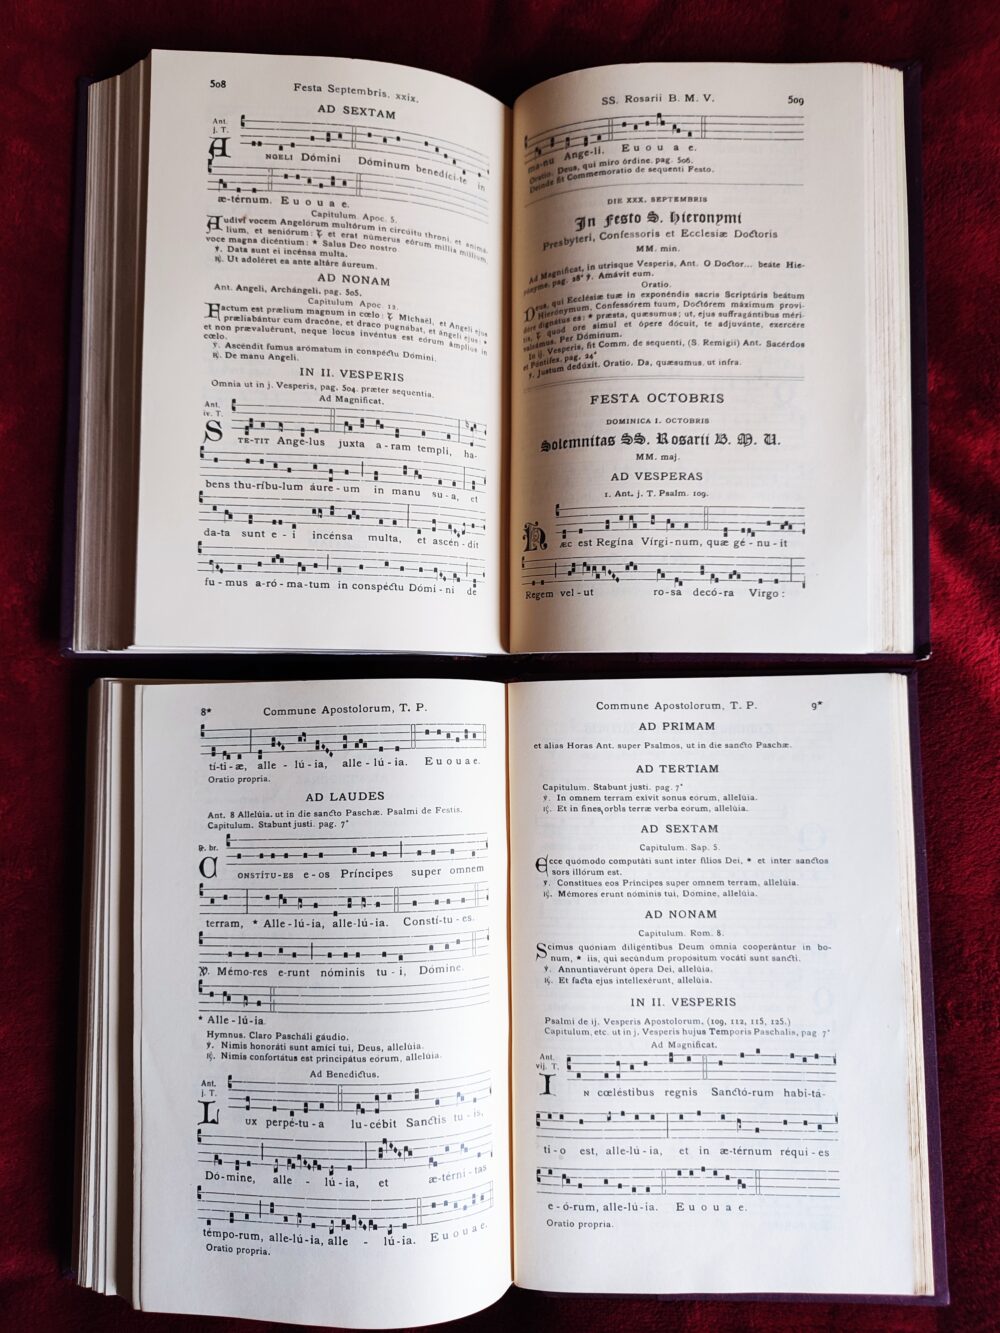 508
Festa Septembris, xxix.
AD SEXTAM
Ant.
j. T.
ANGELI Dómini Dóminum benedíci-te in
æ-térnum. E u o u a e.
Capitulum Apoc. 5.
Audívi vocem Angelórum multórum in circúitu throni, et animá-
lium, et seniórum: ℣ et erat númerus eórum míllia míllium,
voce magna dicéntium: * Salus Deo nostro
℣. Data sunt ei incénsa multa.
℟. Ut adoléret ea ante altáre áureum.
AD NONAM
Ant. Angeli, Archángeli, pag. 505.
Capitulum Apoc. 12.
Factum est prælium magnum in cœlo: ℣ Míchaël, et Angeli ejus
præliabántur cum dracóne, et draco pugnábat, et ángeli ejus: *
et non prævaluérunt, neque locus invéntus est eórum ámplius in
cœlo.
℣. Ascéndit fumus arómatum in conspéctu Dómini.
℟. De manu Angeli.
IN II. VESPERIS
Omnia ut in j. Vesperis, pag. 504. præter sequentia.
Ad Magnificat.
Ant.
iv. T.
STE-TIT Ange-lus juxta a-ram templi, ha-
bens thu-ríbu-lum áure-um in manu su-a, et
da-ta sunt e-i incénsa multa, et ascén-dit
fu-mus a-ró-ma-tum in conspéctu Dómi-ni de
SS. Rosarii B. M. V.
509
ma-nu Ange-li. E u o u a e.
Oratio. Deus, qui miro órdine. pag. 506.
Deinde fit Commemoratio de sequenti Festo.
DIE XXX. SEPTEMBRIS
In Festo S. Hieronymi
Presbyteri, Confessoris et Ecclesiæ Doctoris
MM. min.
Ad Magnificat, in utrisque Vesperis, Ant. O Doctor... beáte Hie-
rónyme, pag. 28* ℣. Amávit eum.
Oratio.
Deus, qui Ecclésiæ tuæ in exponéndis sacris Scriptúris beátum
Hierónymum, Confessórem tuum, Doctórem máximum proví-
dére dignátus es: * præsta, quæsumus; ut, ejus suffragántibus méri-
tis, ℣ quod ore simul et ópere dócuit, te adjuvánte, exercére
valeámus. Per Dóminum.
In ij. Vesperis, fit Comm. de sequenti, (S. Remigii) Ant. Sacérdos
et Póntifex, pag. 24*
℣. Justum dedúxit. Oratio. Da, quæsumus, ut infra.
FESTA OCTOBRIS
DOMINICA I. OCTOBRIS
Solemnitas SS. Rosarii B. M. V.
MM. maj.
AD VESPERAS
1. Ant. j. T. Psalm. 109.
HÆC est Regína Vírgi-num, quæ gé-nu-it
Regem vel-ut ro-sa decó-ra Virgo:
8*
Commune Apostolorum, T. P.
tí-ti-æ, alle-lú-ia, alle-lú-ia. E u o u a e.
Oratio propria.
AD LAUDES
Ant. 8 Allelúia. ut in die sancto Paschæ. Psalmi de Festis.
Capitulum. Stabunt justi. pag. 7*
℟. br.
CONSTÍTU-ES e-os Príncipes super omnem
terram, * Alle-lú-ia, alle-lú-ia. Constí-tu-es.
℣. Mémo-res e-runt nóminis tu-i, Dómine.
* Alle-lú-ia.
Hymnus. Claro Pascháli gáudio.
℣. Nimis honoráti sunt amíci tui, Deus, allelúia.
℟. Nimis confortátus est principátus eórum, allelúia.
Ad Benedictus.
Ant.
j. T.
LUX perpé-tu-a lu-cébit Sanctis tu-is,
Dó-mine, alle-lú-ia, et æ-térni-tas
témpo-rum, alle-lú-ia, alle-lú-ia. E u o u a e.
Oratio propria.
Commune Apostolorum, T. P.
9*
AD PRIMAM
et alias Horas Ant. super Psalmos, ut in die sancto Paschæ.
AD TERTIAM
Capitulum. Stabunt justi. pag. 7*
℣. In omnem terram exívit sonus eórum, allelúia.
℟. Et in fines orbis terræ verba eórum, allelúia.
AD SEXTAM
Capitulum. Sap. 5.
Ecce quómodo computáti sunt inter fílios Dei, * et inter sanctos
sors illórum est.
℣. Constítues eos Príncipes super omnem terram, allelúia.
℟. Mémores erunt nóminis tui, Dómine, allelúia.
AD NONAM
Capitulum. Rom. 8.
Scimus quóniam diligéntibus Deum omnia cooperántur in bo-
num, * iis, qui secúndum propósitum vocáti sunt sancti.
℣. Annuntiavérunt ópera Dei, allelúia.
℟. Et facta ejus intellexérunt, allelúia.
IN II. VESPERIS
Psalmi de ij. Vesperis Apostolorum, (109, 112, 115, 125.)
Capitulum, etc. ut in j. Vesperis hujus Temporis Paschalis, pag 7*
Ad Magnificat.
Ant.
vij. T.
IN cœléstibus regnis Sanctó-rum habi-tá-
ti-o est, alle-lú-ia, et in æ-térnum réqui-es
e-ó-rum, alle-lú-ia. E u o u a e.
Oratio propria.